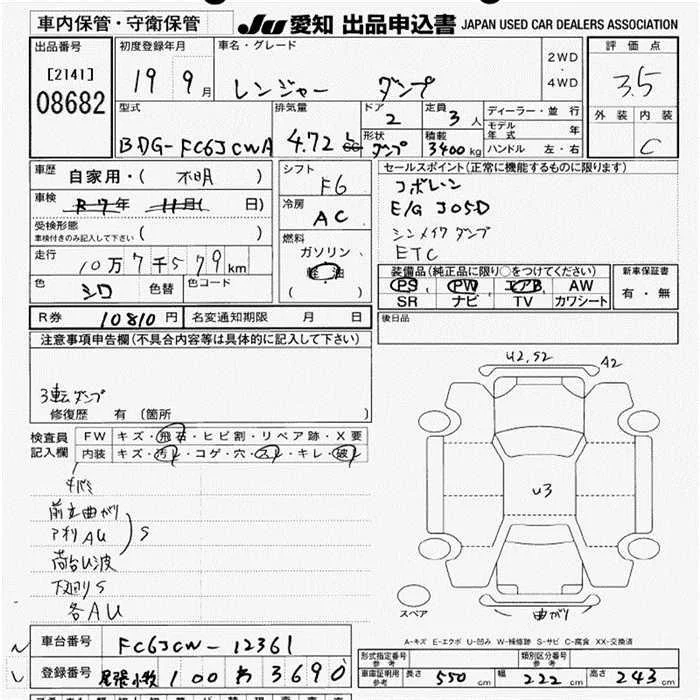 車内保管・守衛保管
JU 愛知 出品申込書 JAPAN USED CAR DEALERS ASSOCIATION
出品番号
[2141]
08682
初度登録年月
19 9月
車名・グレード
レンジャー ダンプ
2WD
・
4WD
評価点
3.5
外装 内装
C
型式
BDG-FC6JCWA
排気量
4.72 L
ドア
2
定員
3人
形状
ダンプ
積載
3400kg
ディーラー・並行
モデル年式 年
ハンドル 左・右
車歴
自家用・( 不明 )
車検
R-7年 11月( 日)
受検形態
車検付きのみ記入して下さい ( )
走行
10万7千579km
色
シロ
色替
色コード
シフト
F6
冷房
AC
燃料
ガソリン
軽油
( )
セールスポイント(正常に機能するものに限ります)
コボレン
E/G J05D
シンメイワ ダンプ
ETC
装備品(純正品に限り○をつけてください)
PS PW エアB AW
SR ナビ TV カワシート
新車保証書
有・無
R券 10810円
名変通知期限 月 日
後日品
注意事項申告欄(不具合内容等は具体的に記入して下さい)
3転ダンプ
修復歴 有 (箇所 )
検査員
記入欄
FW キズ・飛石・ヒビ割・リペア跡・X要
内装 キズ・汚れ・コゲ・穴・スレ・キレ・破れ
前立曲がり
アオリAU
S
荷台U波
下廻りS
各AU
U2,S2
A2
U3
スペア
曲がり
A-キズ E-エクボ U-凹み W-補修跡 S-サビ C-腐食 XX-交換済
車台番号
FC6JCW-12361
登録番号
尾張小牧 100 か 3690
形式指定番号
参考
類別区分番号
参考
車庫証明用
参考
長さ 550cm
幅 222cm
高さ 243cm